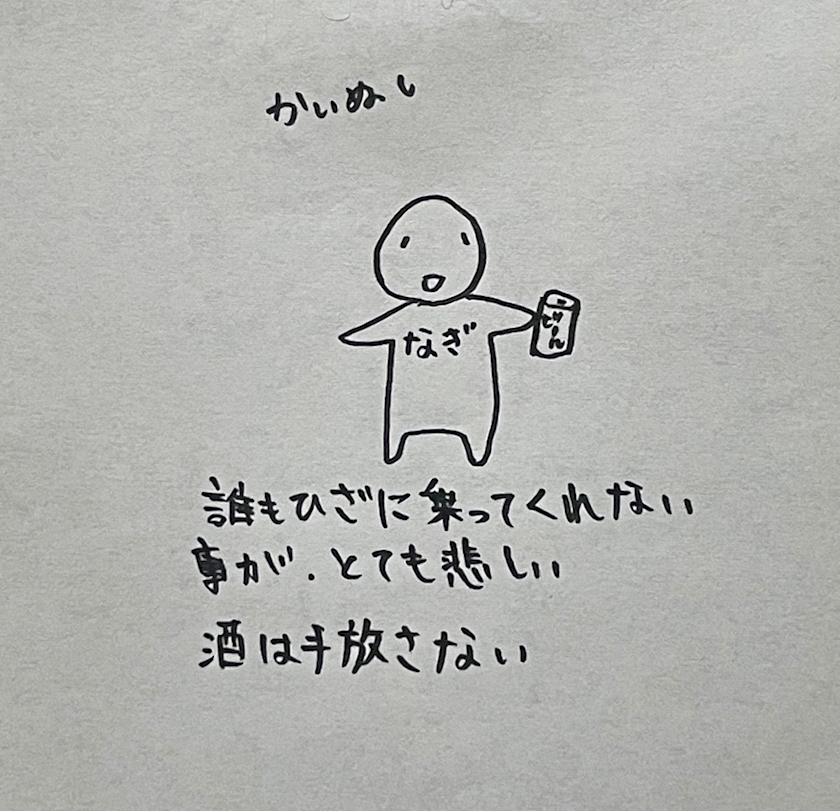 かいぬし
なぎ
びーる
誰もひざに乗ってくれない
事が、とても悲しい
酒は手放さない